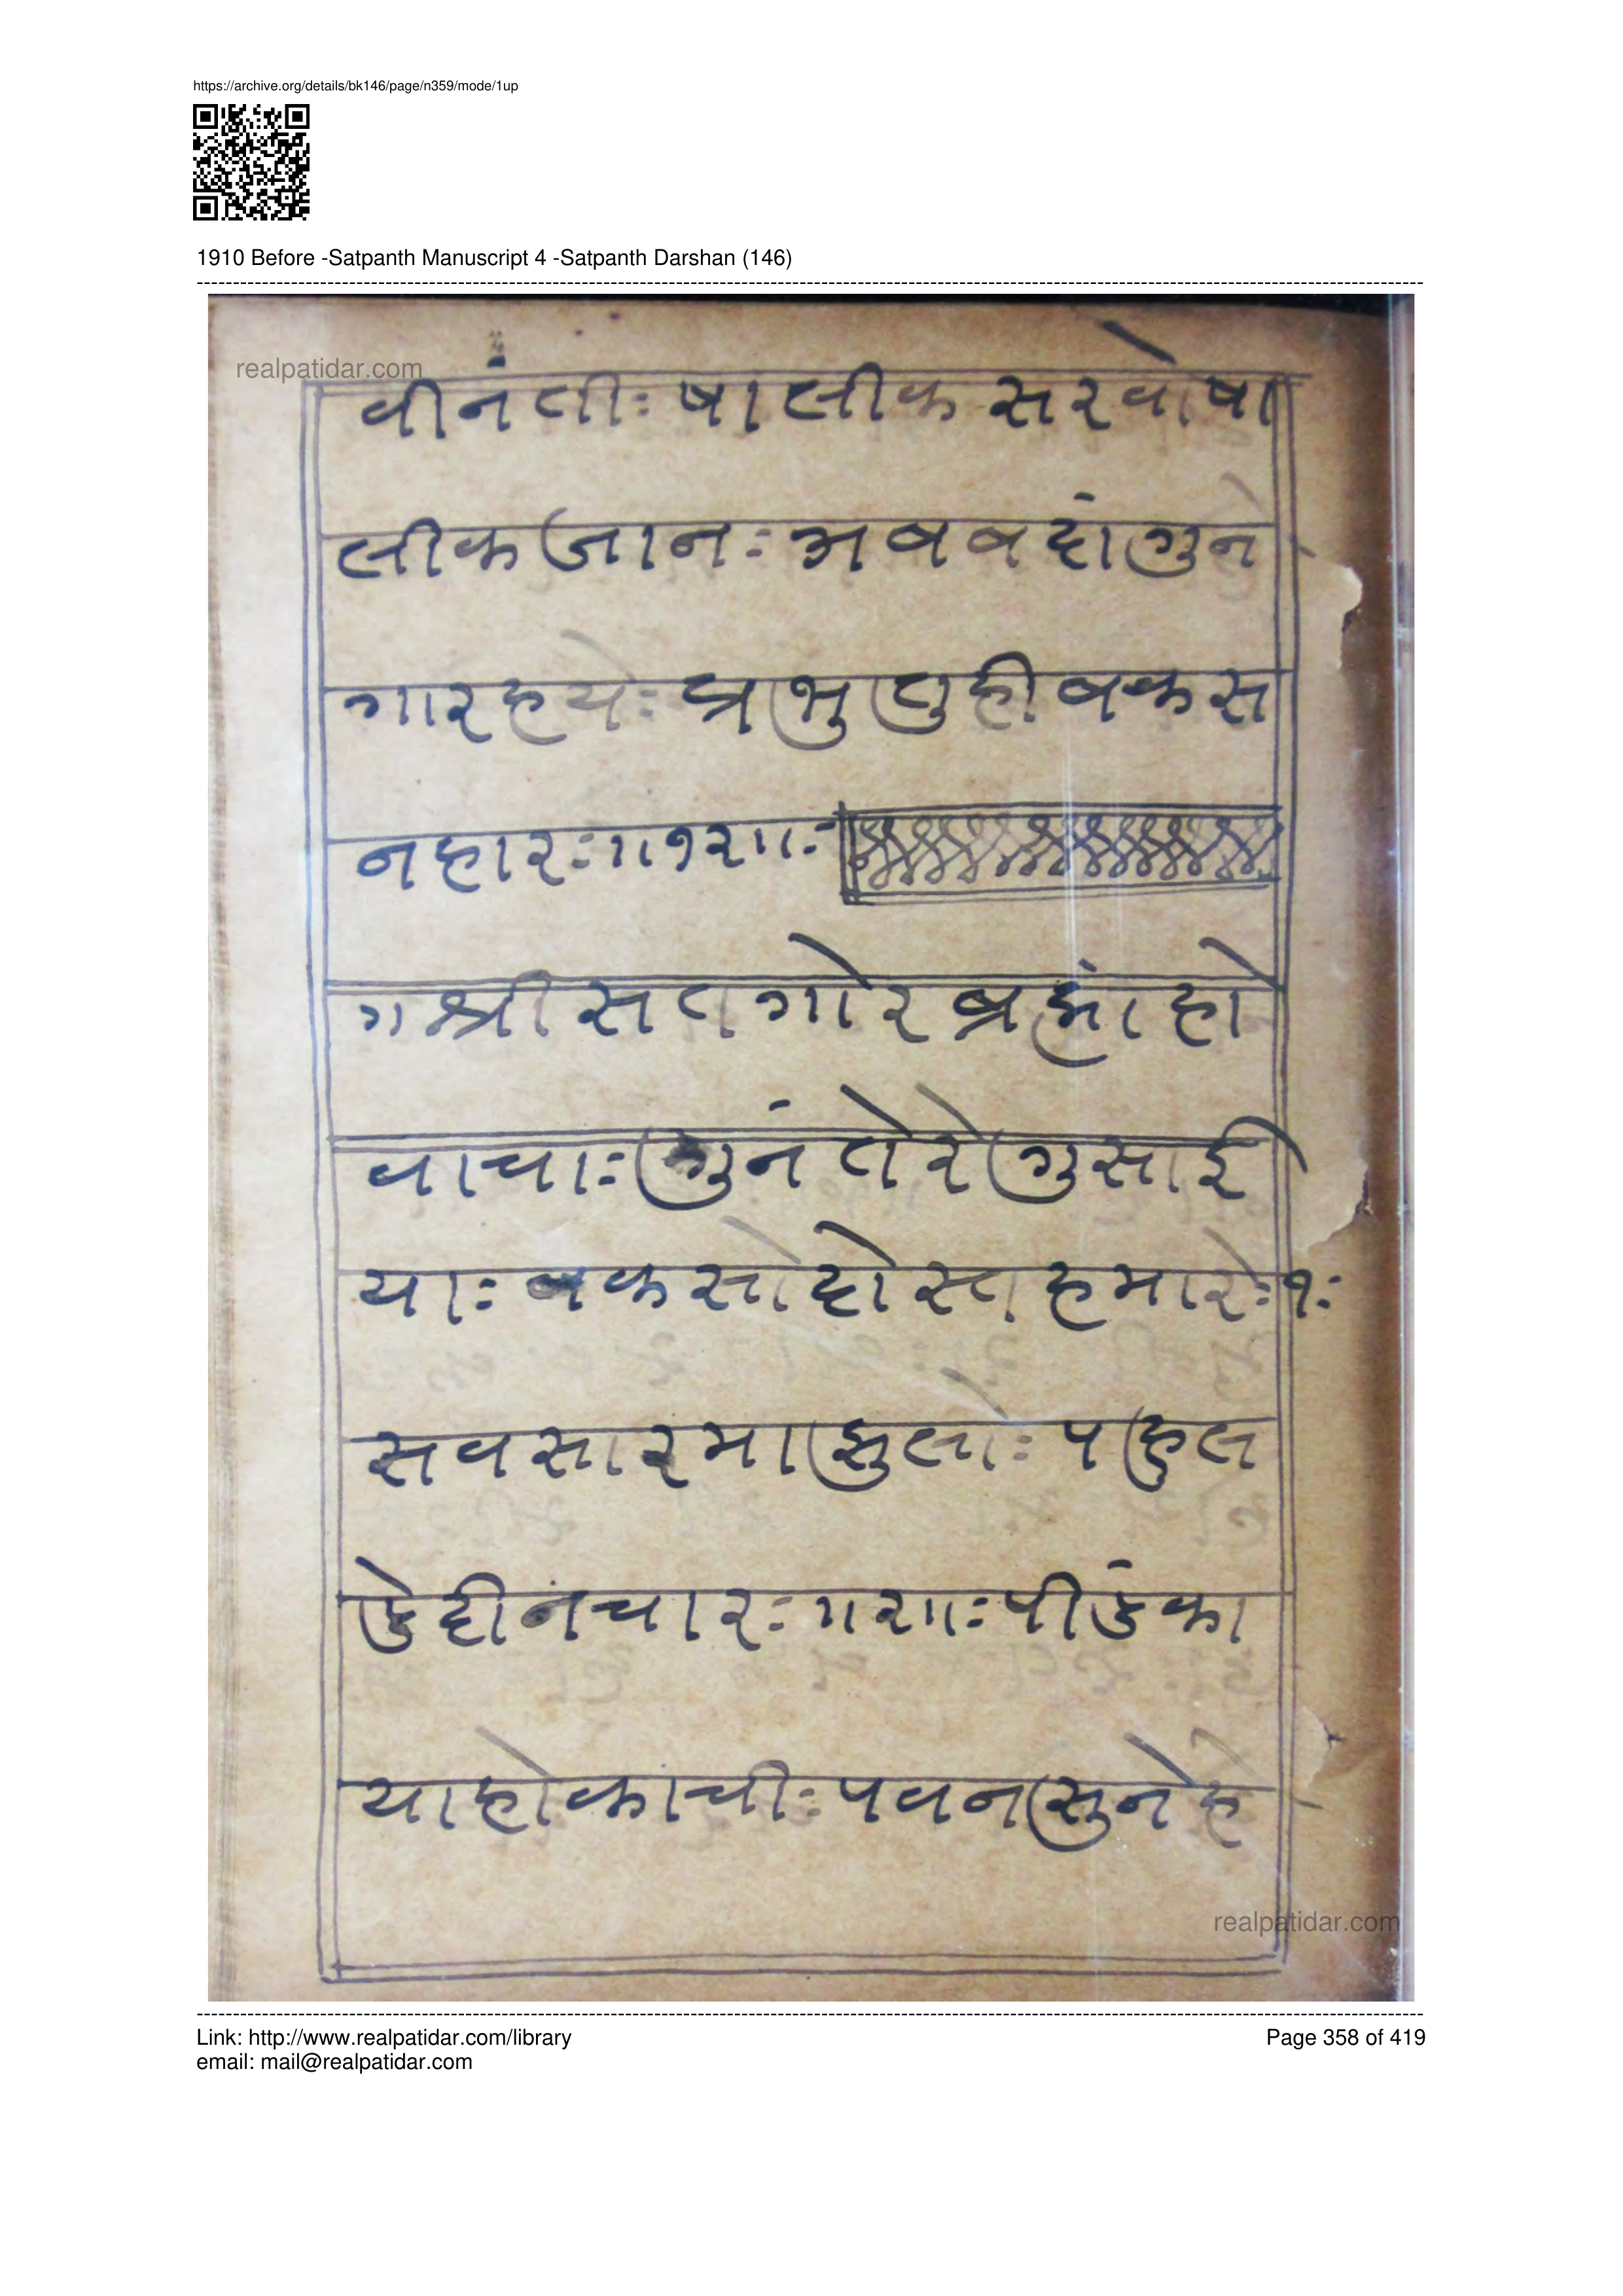 https://archive.org/details/bk146/page/n359/mode/1up
1910 Before -Satpanth Manuscript 4 -Satpanth Darshan (146)
realpatidar.com
वीनंतीः षालीक सरवोषा
लीक जानः भव वदांगुने
गारहयेः प्रभु तुही बकस
नहारः॥१२॥ः
॥श्री सतगोर ब्रह्मां हो
वाचाः गुनं तेरे गुसाई
याः बकसो दोस हमारेः१ः
सवसारमा झुलोः पहुल
डे दीनं चारः॥२॥ः पीडंका
या होकाचीः पवन सुनेहे
realpatidar.com
Link: http://www.realpatidar.com/library
Page 358 of 419
email: mail@realpatidar.com